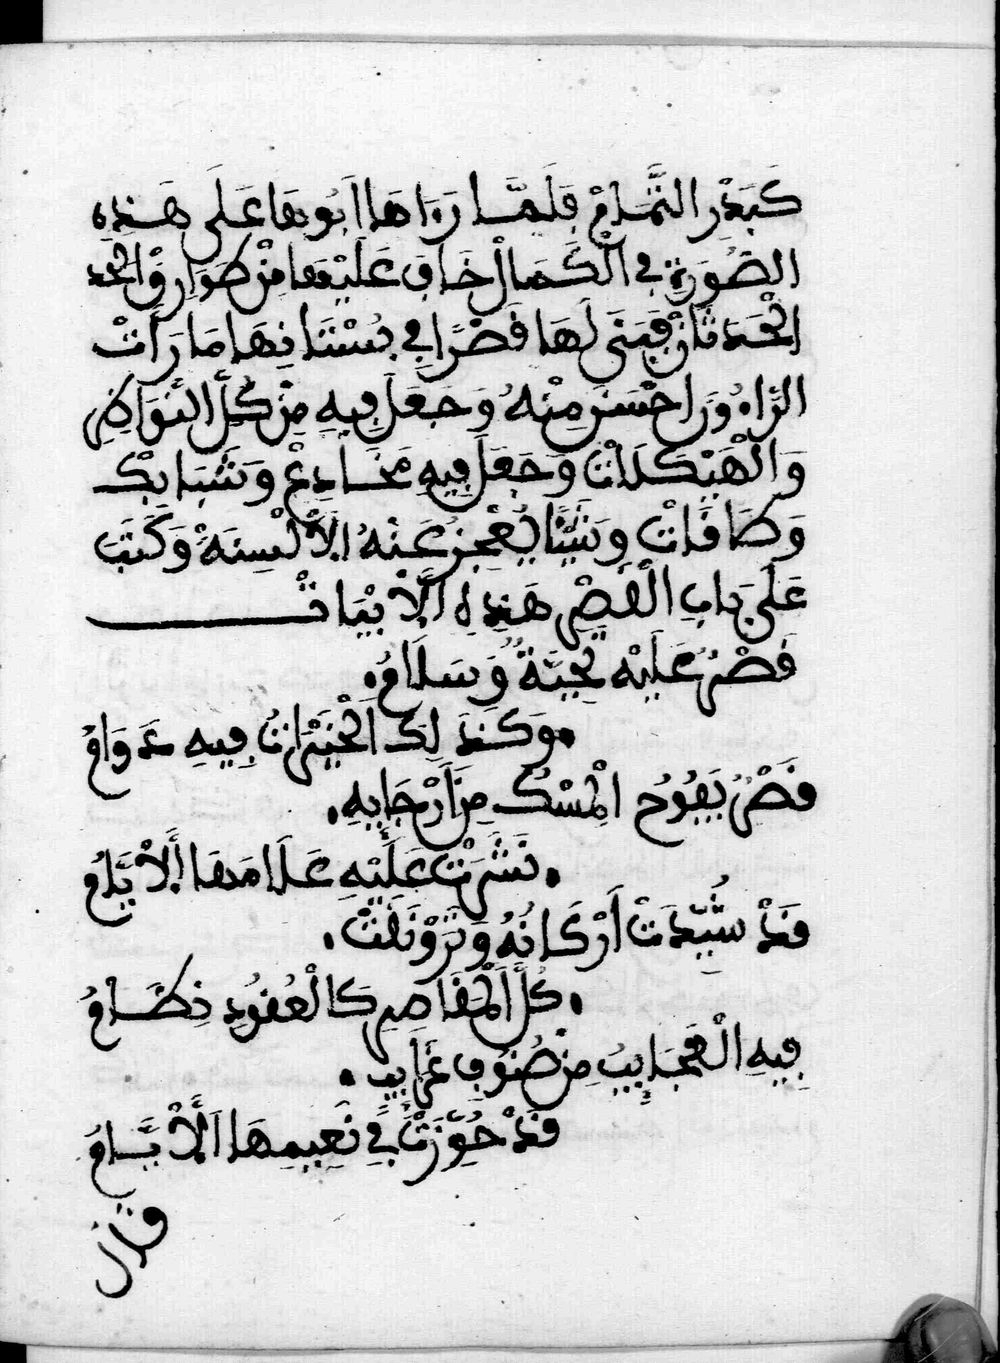 كَبَدْرِ التَّمَامْ فَلَمَّا رَءَاهَا اَبُوهَا عَلَى هَذِهِ
الصُّورَةِ فِي الْكَمَالْ خَافَ عَلَيْهَا مِنْ طَوَارِقْ الحد
الْحَدَثَانْ فَبَنَى لَهَا قَصْرًا فِي بُسْتَانِهَا مَا رَاَتْ
الرَّاءُونَ احْسَنَ مِنْهُ وَجَعَلَ فِيهِ مِنْ كُلِّ النَّوَاكِهِ
وَالْهَيْكَلَاتْ وَجَعَلَ فِيهِ مَخَادِعْ وَشَبَابِكْ
وَطَاقَاتْ وَشَيْئًا يُعْجِزُ عَنْهُ الْأَلْسِنَةْ وَكَتَبَ
عَلَى بَابِ الْقَصْرِ هَذِهِ الْأَبْيَاتْ
قَصْرٌ عَلَيْهِ تَحِيَّةٌ وَسَلَامُ.
.وَكَذَلِكَ الْخَيْرَاتُ فِيهِ دَوَامُ
قَصْرٌ يَفُوحُ الْمِسْكُ مِنْ أَرْجَايِهِ.
.نَشَرَتْ عَلَيْهِ عَلَامَهَا الْأَيَّامُ
قَدْ شُيِّدَتْ أَرْكَانُهُ وَتَرَوْنَقَتْ.
.كُلُّ الْمَقَاصِرِ كَالْعُقُودِ نِظَامُ
فِيهِ الْعَجَايِبُ مِنْ صُنُوفِ غَرَايِبِ.
قَدْ حُوِّزَتْ فِي نَعِيمِهَا الْأَيَّامُ